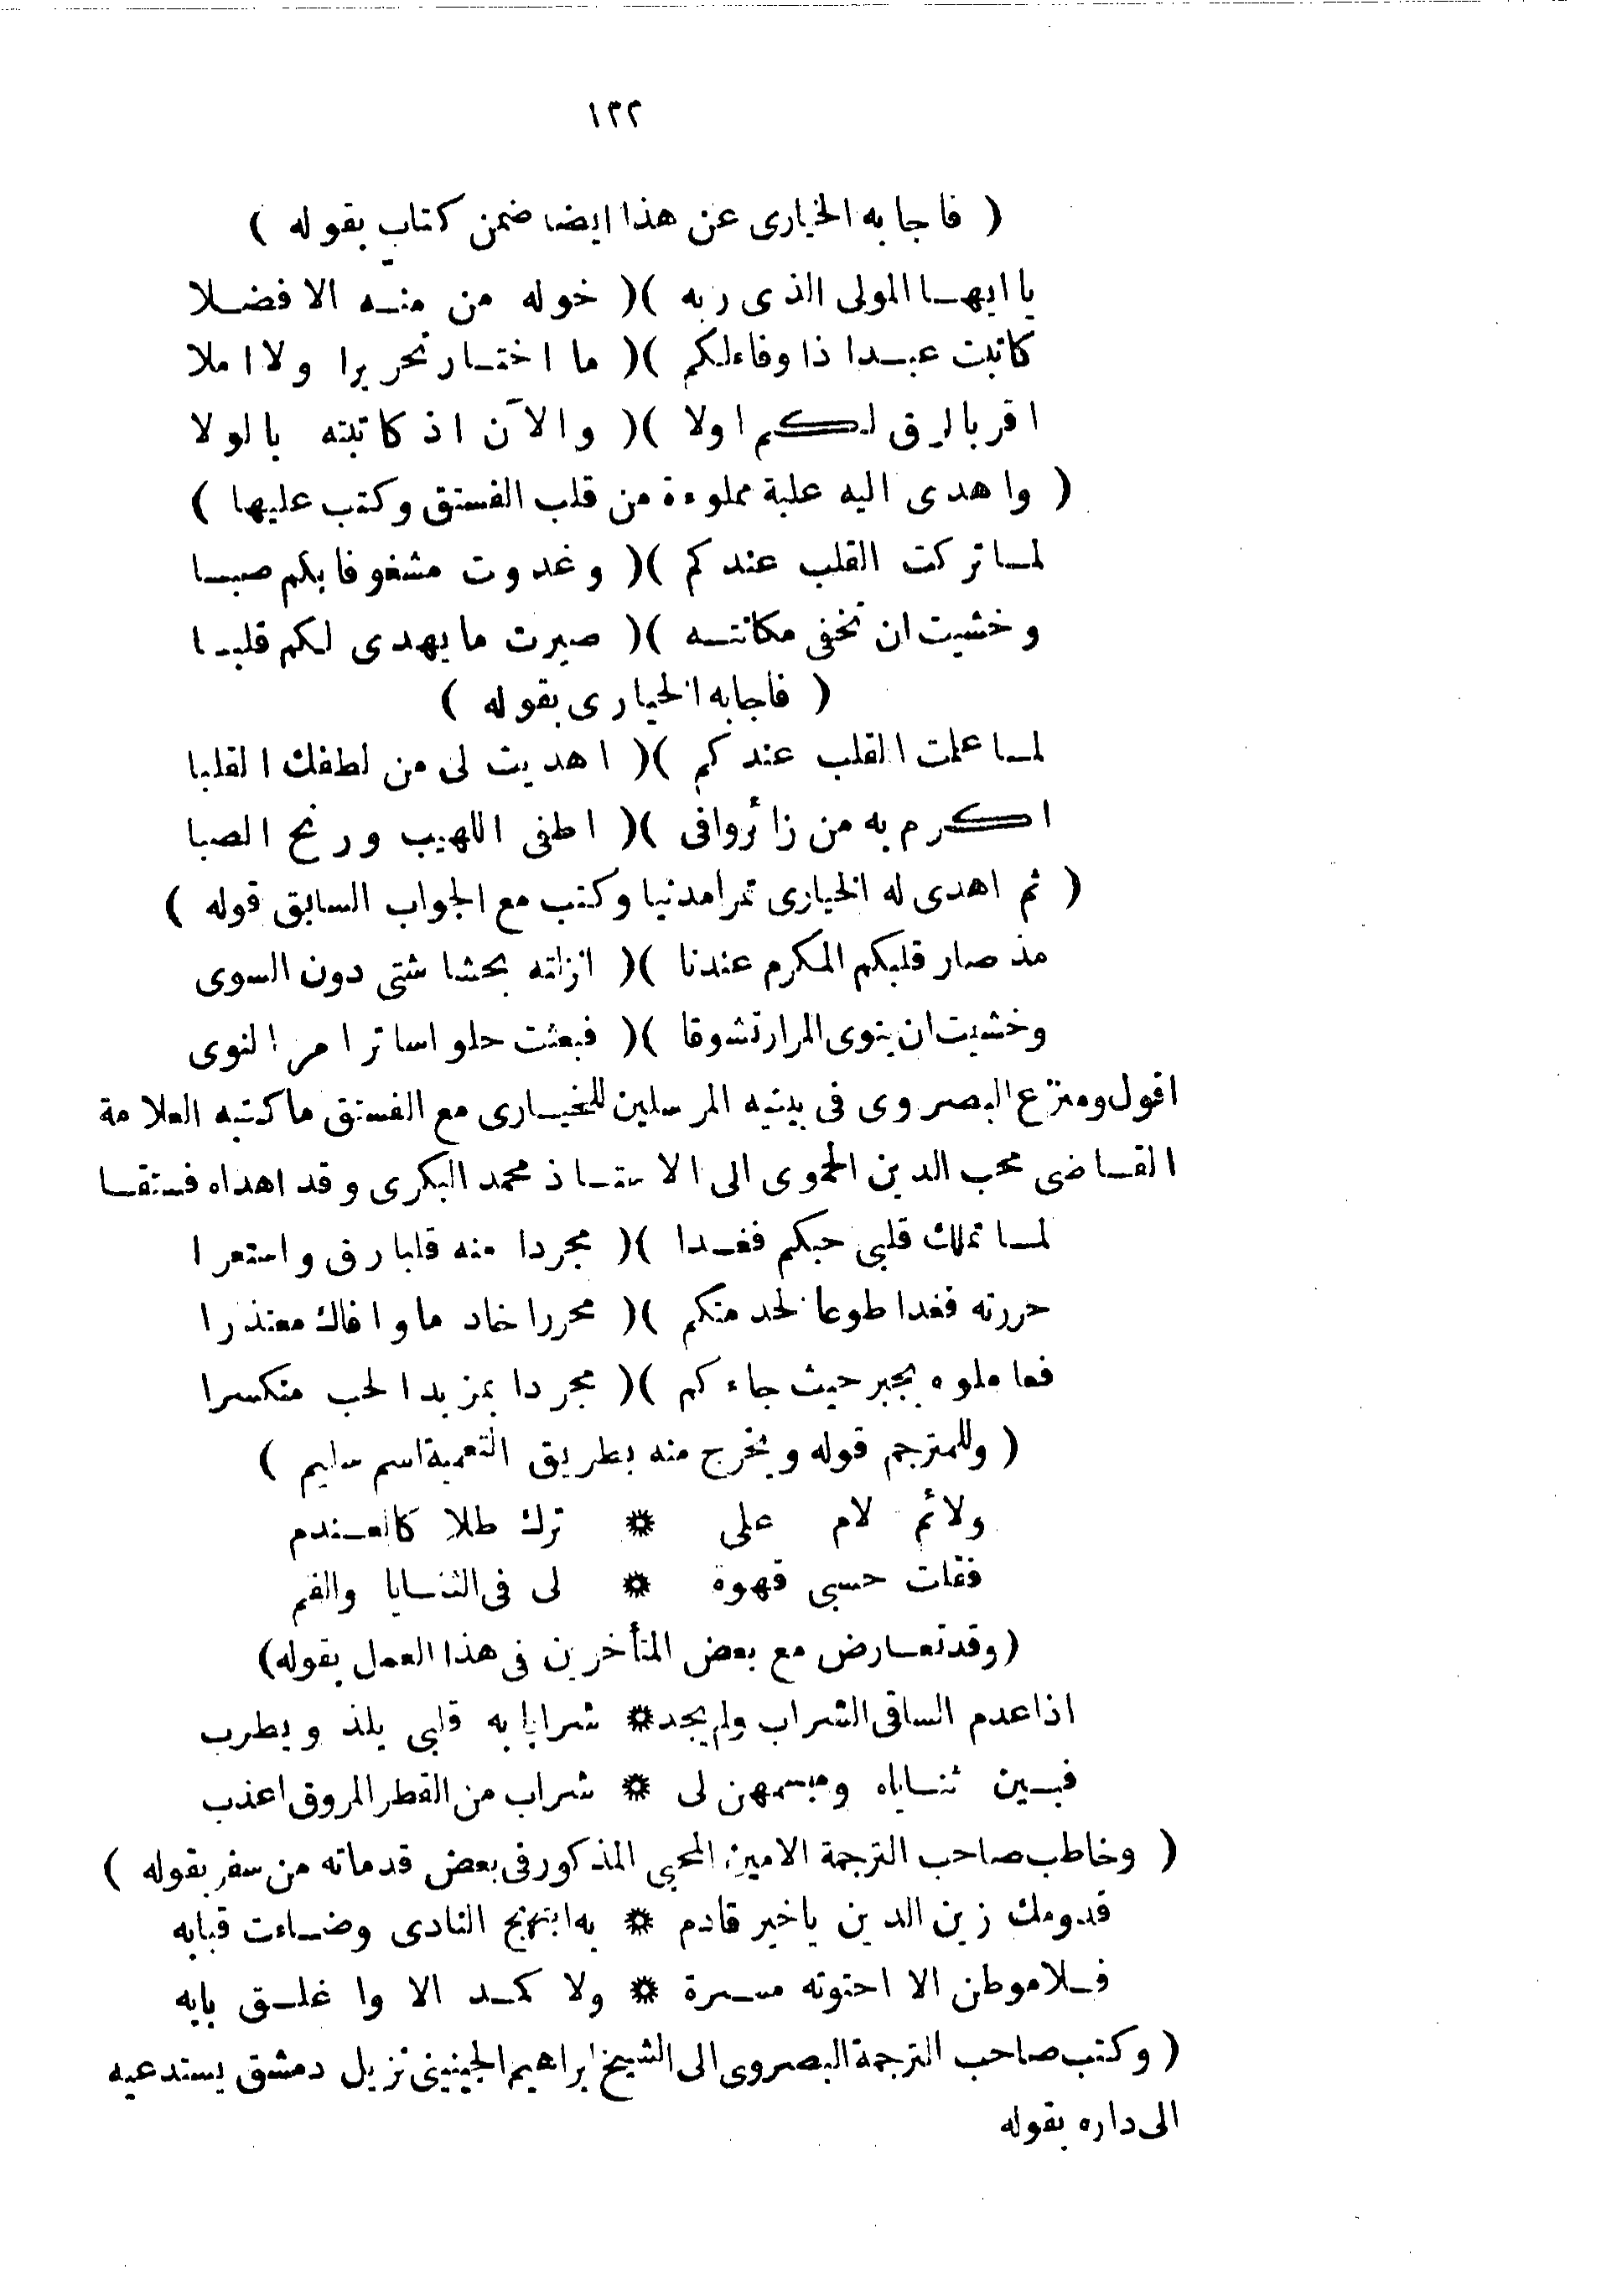 ١٣٢
( فاجابه الخيارى عن هذا ايضا ضمن كتاب بقوله )
يا ايها المولى الذى ربه )( خوله من منه الافضلا
كاتبت عبدا ذا وفاء لكم )( ما اختار تحريرا ولا املا
اقر بالرق لكم اولا )( والآن اذ كاتبته بالولا
( واهدى اليه علبة مملوءة من قلب الفستق وكتب عليها )
لما تركت القلب عندكم )( وغدوت مشغوفا بكم صبا
وخشيت ان تخفى مكانته )( صيرت ما يهدى لكم قلبا
( فاجابه الخيارى بقوله )
لما علمت القلب عندكم )( اهديت لى من لطفك القلبا
اكرم به من زائر وافى )( اطفى اللهيب ورنح الصبا
( ثم اهدى له الخيارى تمرا مدنيا وكتب مع الجواب السابق قوله )
مذ صار قلبكم المكرم عندنا )( انزلته بحشاشتى دون السوى
وخشيت ان ينوى المرار تشوقا )( فبعثت حلوا ساترا مر النوى
اقول ومنزع البصروى فى بيتيه المرسلين للخيارى مع الفستق ما كتبه العلامة
القاضى محب الدين الحموى الى الاستاذ محمد البكرى وقد اهداه فستقا
لما تملك قلبى حبكم فغدا )( مجردا منه قلبا رق واستعرا
حررته فغدا طوعا لخدمتكم )( محررا خادما وافاك معتذرا
فعاملوه بجبر حيث جاءكم )( مجردا بمزيد الحب منكسرا
( وللمترجم قوله ويخرج منه بطريق التعمية اسم سليم )
ولائم لام على * ترك طلا كالعندم
فقلت حسبى قهوة * لى فى الثنايا والفم
(وقد تعارض مع بعض المتأخرين فى هذا العمل بقوله)
اذا عدم الساقى الشراب ولم يجد * شرابا به قلبى يلذ ويطرب
فبين ثناياه ومبسمهن لى * شراب من القطر المروق اعذب
( وخاطب صاحب الترجمة الامين المحبى المذكور فى بعض قدماته من سفر بقوله )
قدومك زين الدين يا خير قادم * به ابتهج النادى وضاءت قبابه
فلا موطن الا احتوته مسرة * ولا كمد الا وا غلق بابه
( وكتب صاحب الترجمة البصروى الى الشيخ ابراهيم الجينينى نزيل دمشق يستدعيه
الى داره بقوله